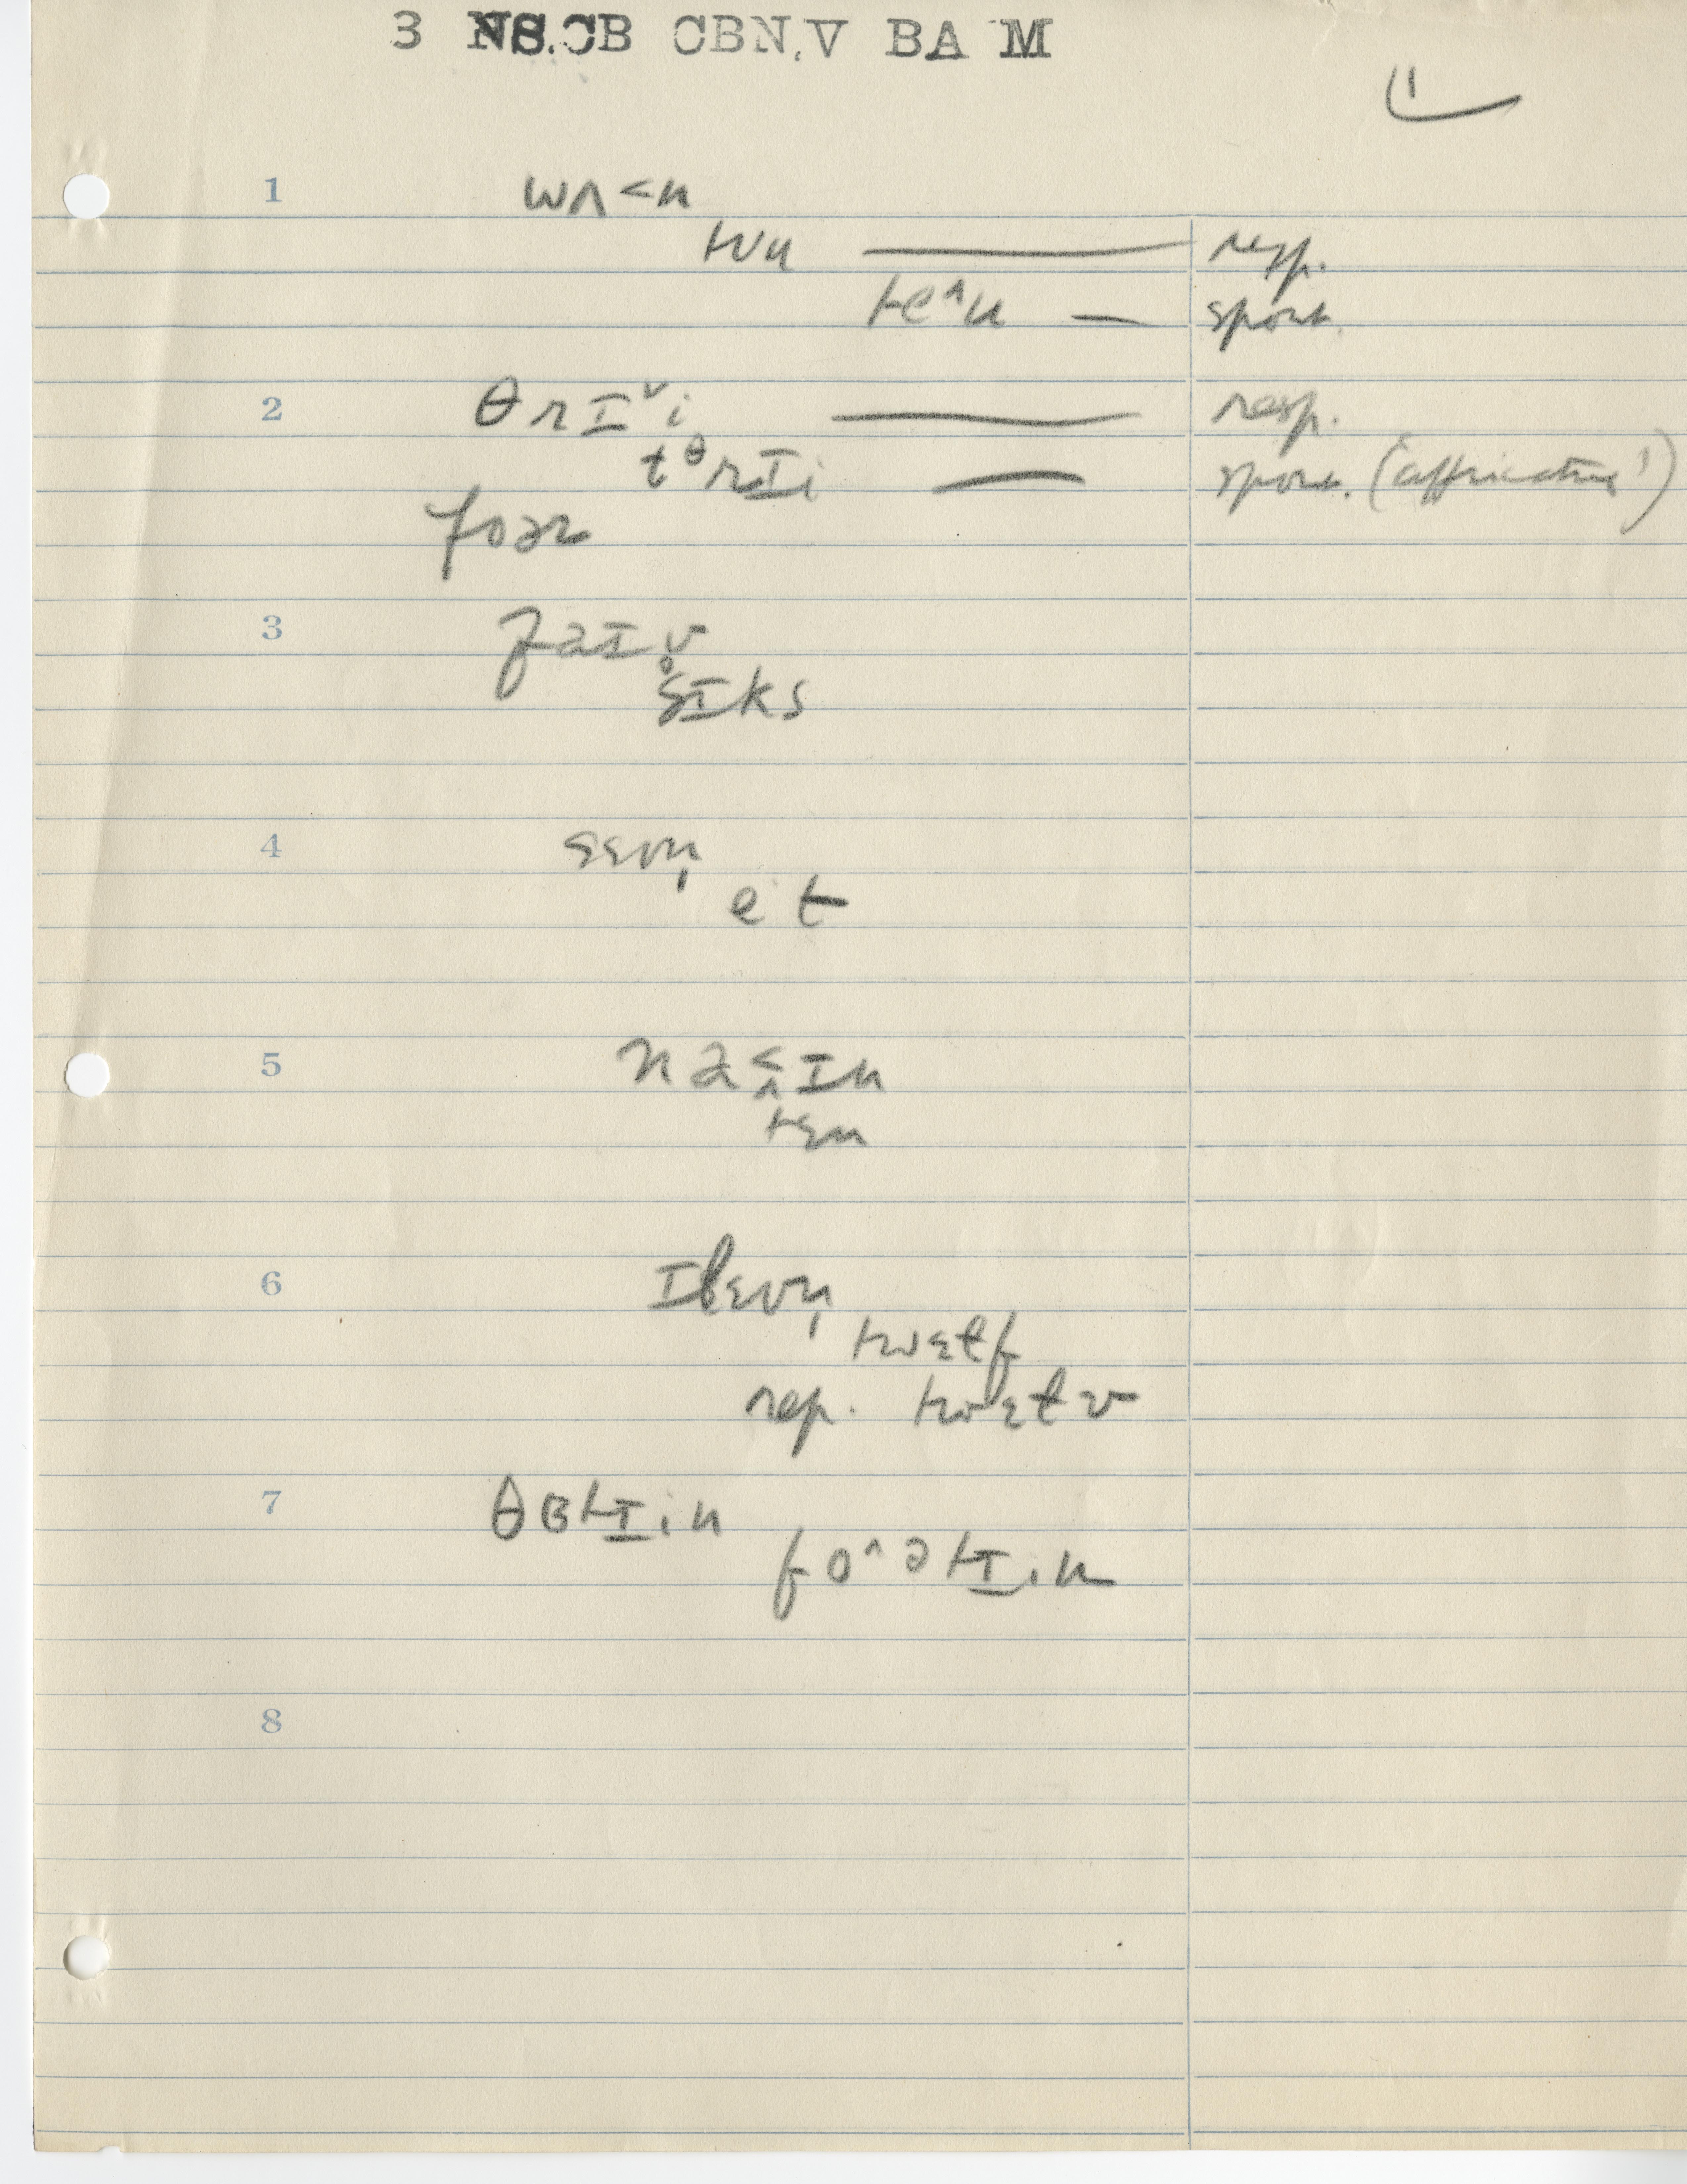 3 NS.CB CBN.V BA M
1 wʌ˂n
tʊu resp.
tɵ˄u spont.
2 θrɪ˅i resp.
tᶿrɪi spont. (affricative!)
foər
3 faɪv̥
sɪks
4 sɛvn̩
et
5 naɪ˂˄n
tɛn
6 ɪlɛvn̩
twɛlf
rep. twɛlv
7 θɜtɪin
fo˄ətɪin
8